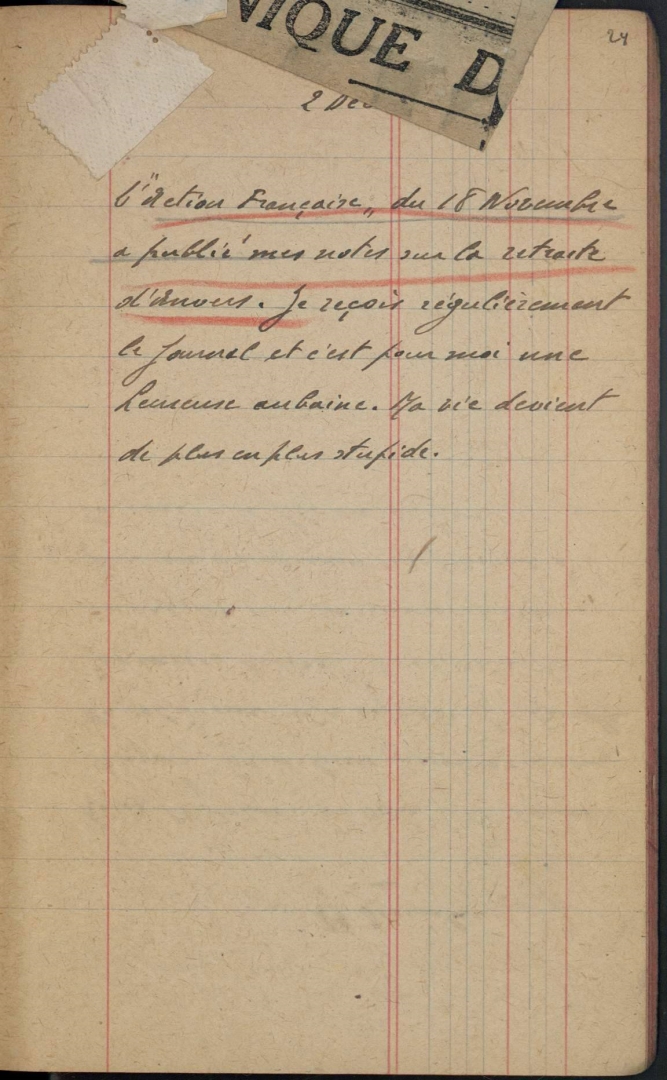 24
NIQUE D
2 Dec
L'"Action Française" du 18 Novembre
a publié mes notes sur la retraite
d'Anvers. Je reçois régulièrement
le Journal et c'est pour moi une
heureuse aubaine. Ma vie devient
de plus en plus stupide.